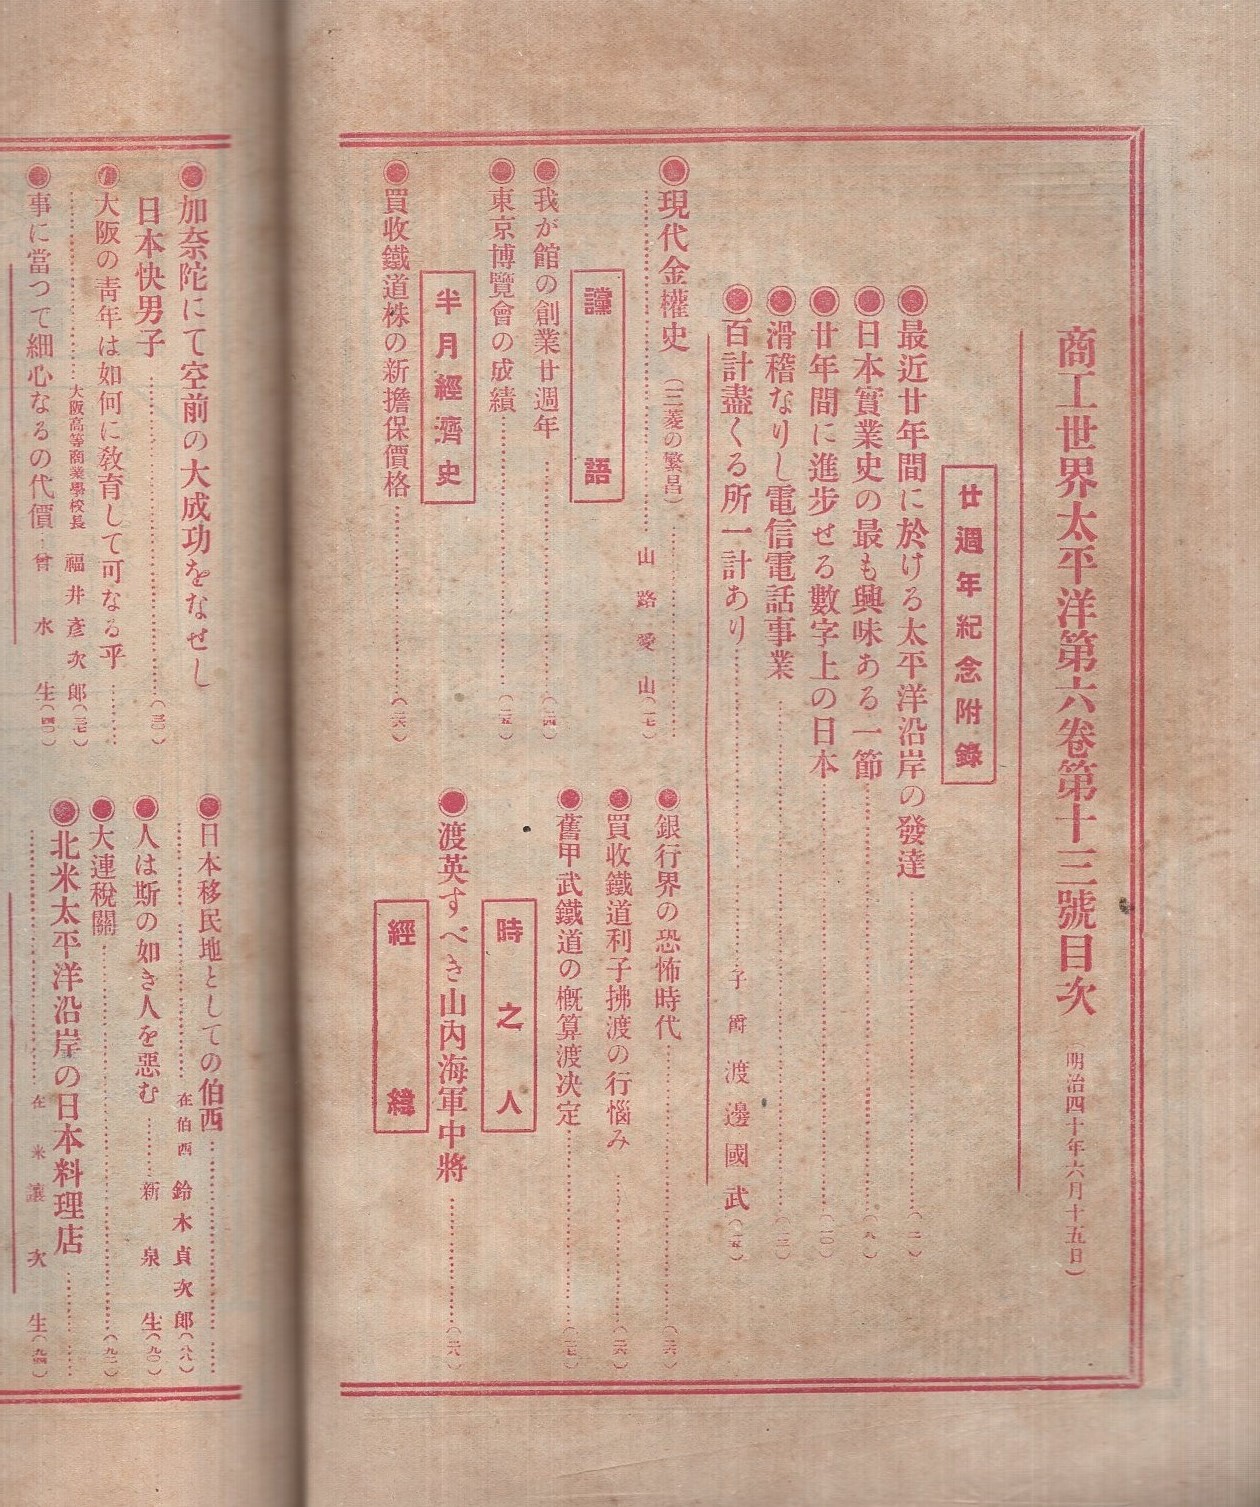 商工世界太平洋第六卷第十三號目次（明治四十年六月十五日）
廿週年紀念附錄
●最近廿年間に於ける太平洋沿岸の發達
●日本實業史の最も興味ある一節
●廿年間に進步せる數字上の日本
●滑稽なりし電信電話事業
●百計盡くる所一計あり 子爵 渡邊國武（一五）
●現代金權史（三菱の繁昌）
山路愛山（一七）
讜語
●我が館の創業廿週年（二四）
●東京博覽會の成績（二五）
半月經濟史
●買收鐵道株の新擔保價格（二六）
●銀行界の恐怖時代（二六）
●買收鐵道利子拂渡の行惱み（二六）
●舊甲武鐵道の槪算渡決定（二七）
時之人
●渡英すべき山內海軍中將（二八）
經緯
●加奈陀にて空前の大成功をなせし
日本快男子（三〇）
●大阪の靑年は如何に敎育して可なる乎
大阪高等商業學校長 福井彥次郞（三七）
●事に當つて細心なるの代價 曾水生（四〇）
●日本移民地としての伯西
在伯西 鈴木貞次郞（八八）
●人は斯の如き人を惡む 新泉生（九〇）
●大連稅關（九二）
●北米太平洋沿岸の日本料理店
在米 讓次生（九四）